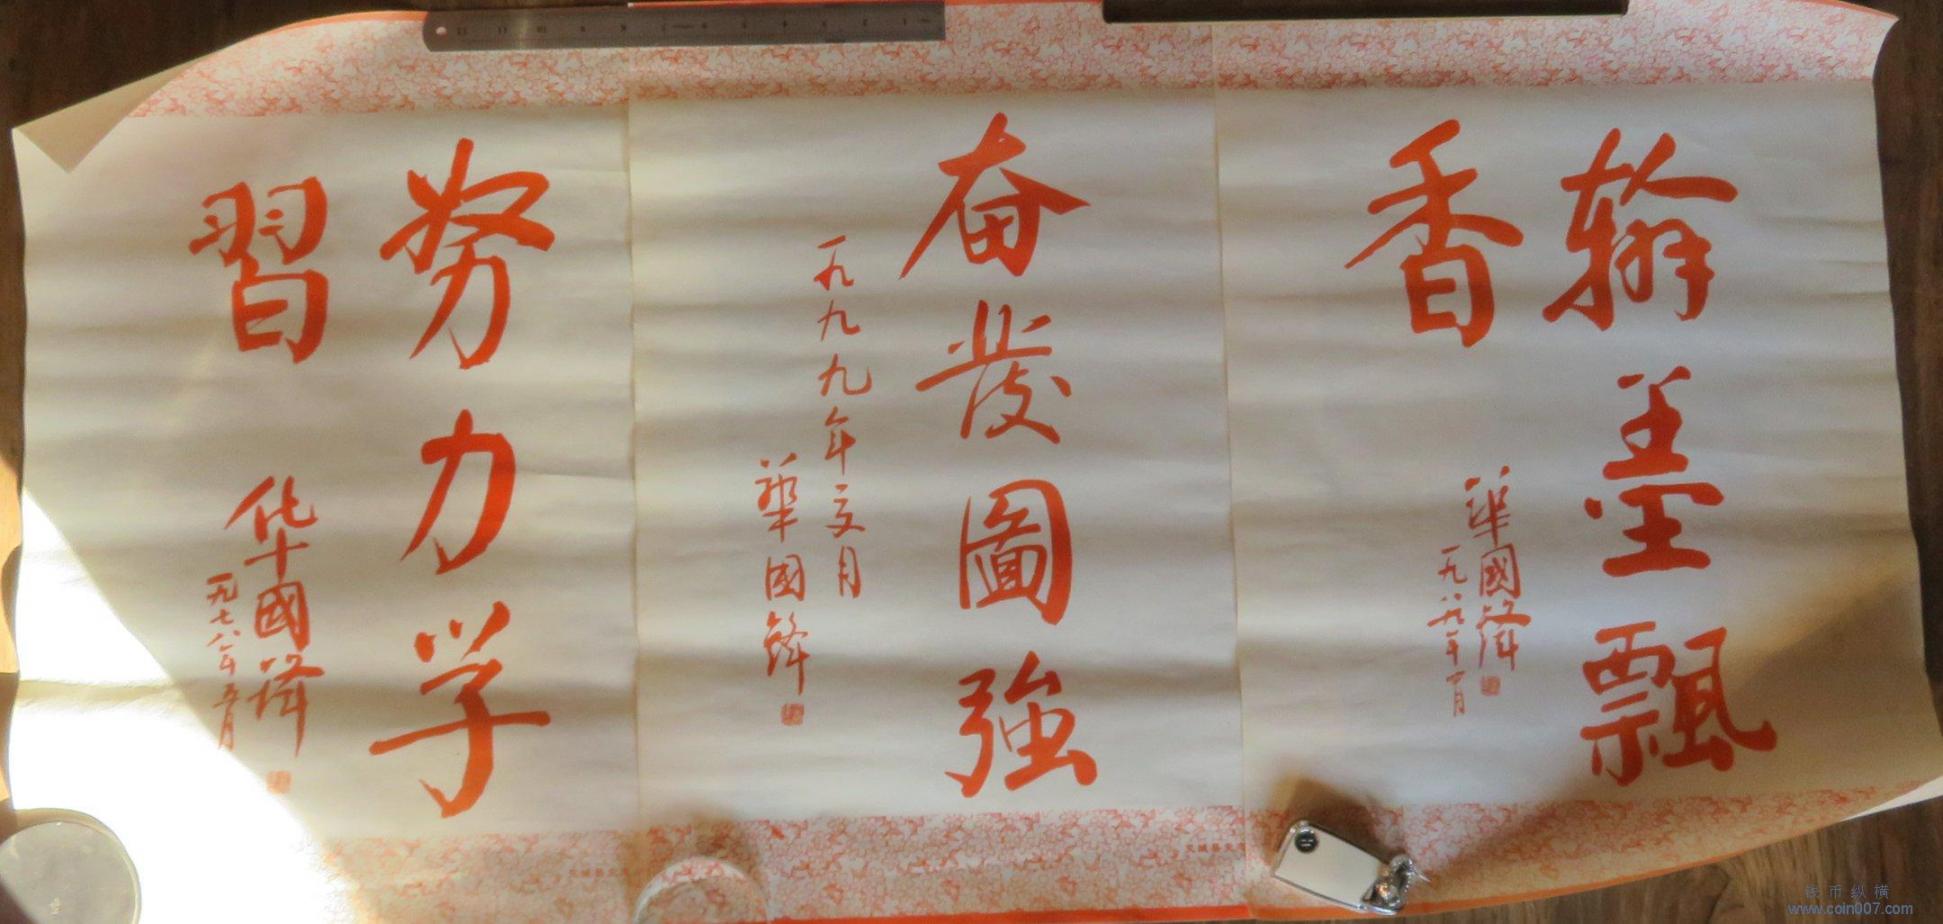 翰墨飄
香
華國鋒
一九八九年十月
奋發圖強
一九九九年月
華國鋒
努力学
習
华國鋒
一九七八年五月
钱币纵横
www.coin007.com